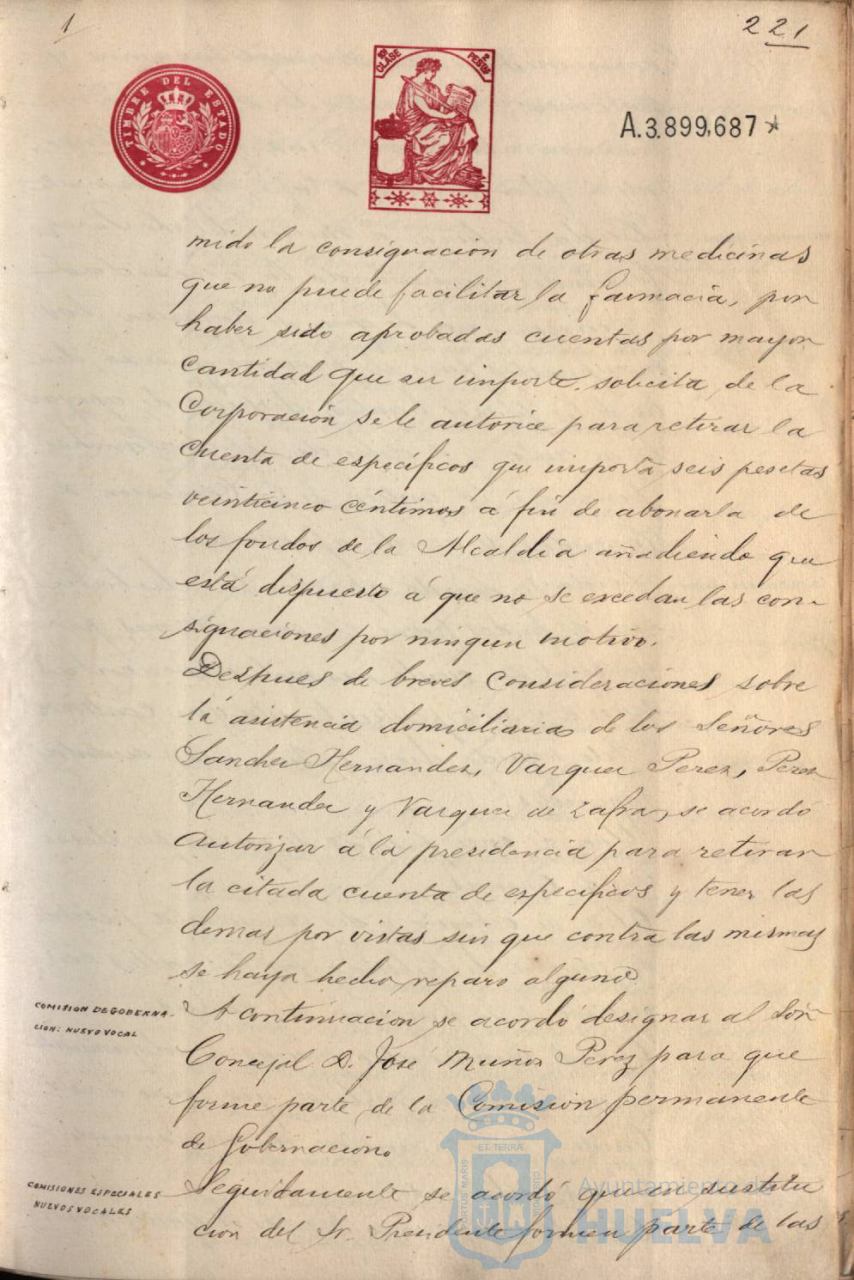 1
221
TIMBRE DEL ESTADO
10ª CLASE
2 PESETAS
A.3.899,687
mido la consignación de otras medicinas
que no puede facilitar la farmacia, por
haber sido aprobadas cuentas por mayor
cantidad que su importe. solicita de la
Corporación se le autorice para retirar la
cuenta de específicos que importa seis pesetas
veinticinco céntimos á fin de abonarla de
los fondos de la Alcaldía añadiendo que
está dispuesto á que no se excedan las con-
signaciones por ningun motivo.
Despues de breves consideraciones sobre
la asistencia domiciliaria de los Señores
Sanchez Hernandez, Vazquez Perez, Perez
Hernandez y Vazquez de Zafra, se acordó
autorizar á la presidencia para retirar
la citada cuenta de específicos y tener las
demas por vistas sin que contra las mismas
se haya hecho reparo alguno
COMISION DE GOBERNA-
CION: NUEVO VOCAL
A continuacion se acordó designar al Señ
Concejal D. José Muñoz Perez para que
forme parte de la Comisión permanente
de Gobernación.
COMISIONES ESPECIALES
NUEVOS VOCALES
Seguidamente se acordó que en sustitu
cion del Sr. Presidente formen parte de las
Ayuntamiento de
HUELVA